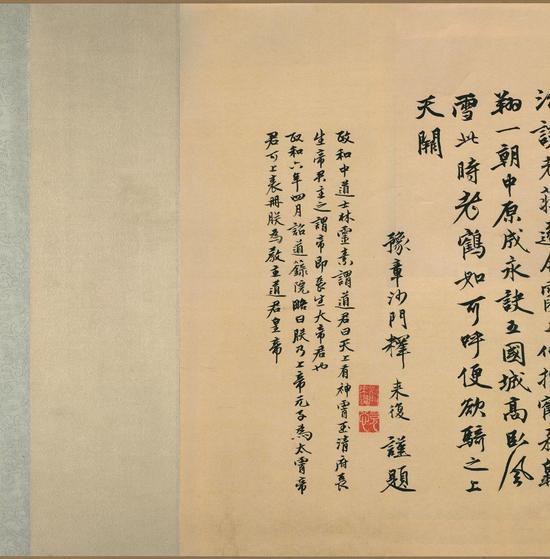 翔一朝中原成永訣五國城高臥風
雪此時老鶴如可呼便欲騎之上
天闕
豫章沙門釋来復謹題
政和中道士林靈素謂道君曰天上有神霄玉清府長
生帝君主之謂帝即長生大帝君也
政和六年四月詔道籙院略曰朕乃上帝元子為太霄帝
君可上表冊朕為教主道君皇帝